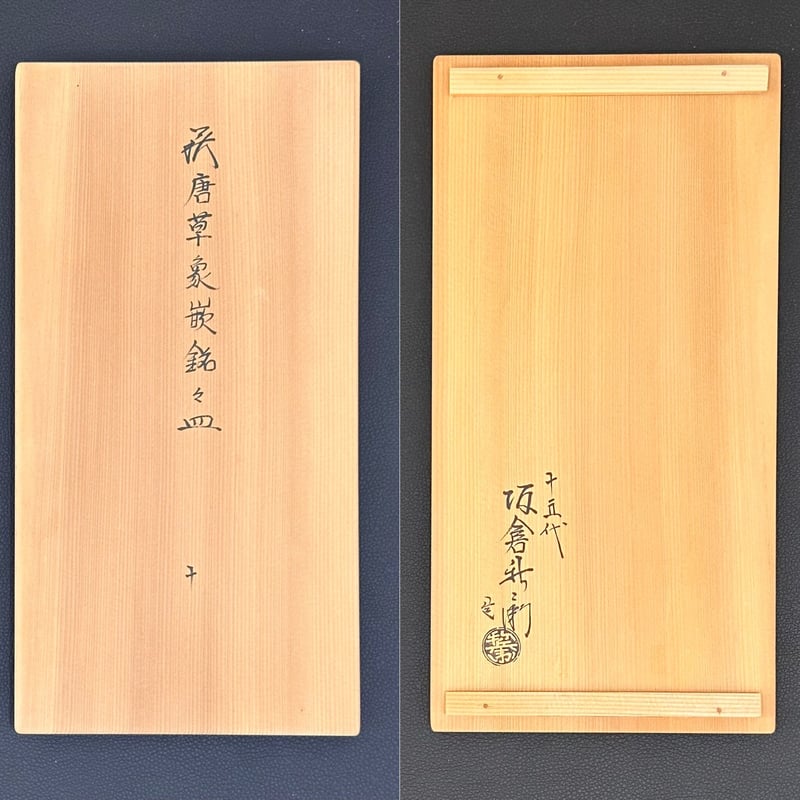 萩唐草象嵌銘々皿
十
十五代
坂倉新兵衛
造